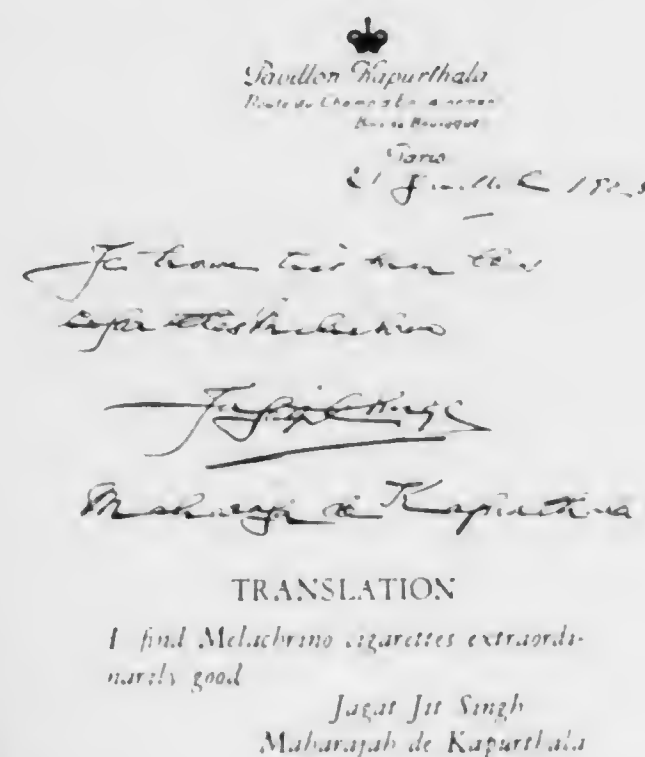 Pavillon Kapurthala
Route du Champ
Paris
21 Juillet
Je trouve très bon les
cigarettes Melachrino
Jagatjit Singh
Maharaja de Kapurthala
TRANSLATION
I find Melachrino cigarettes extraordi-
narily good
Jagat Jit Singh
Maharajah de Kapurthala